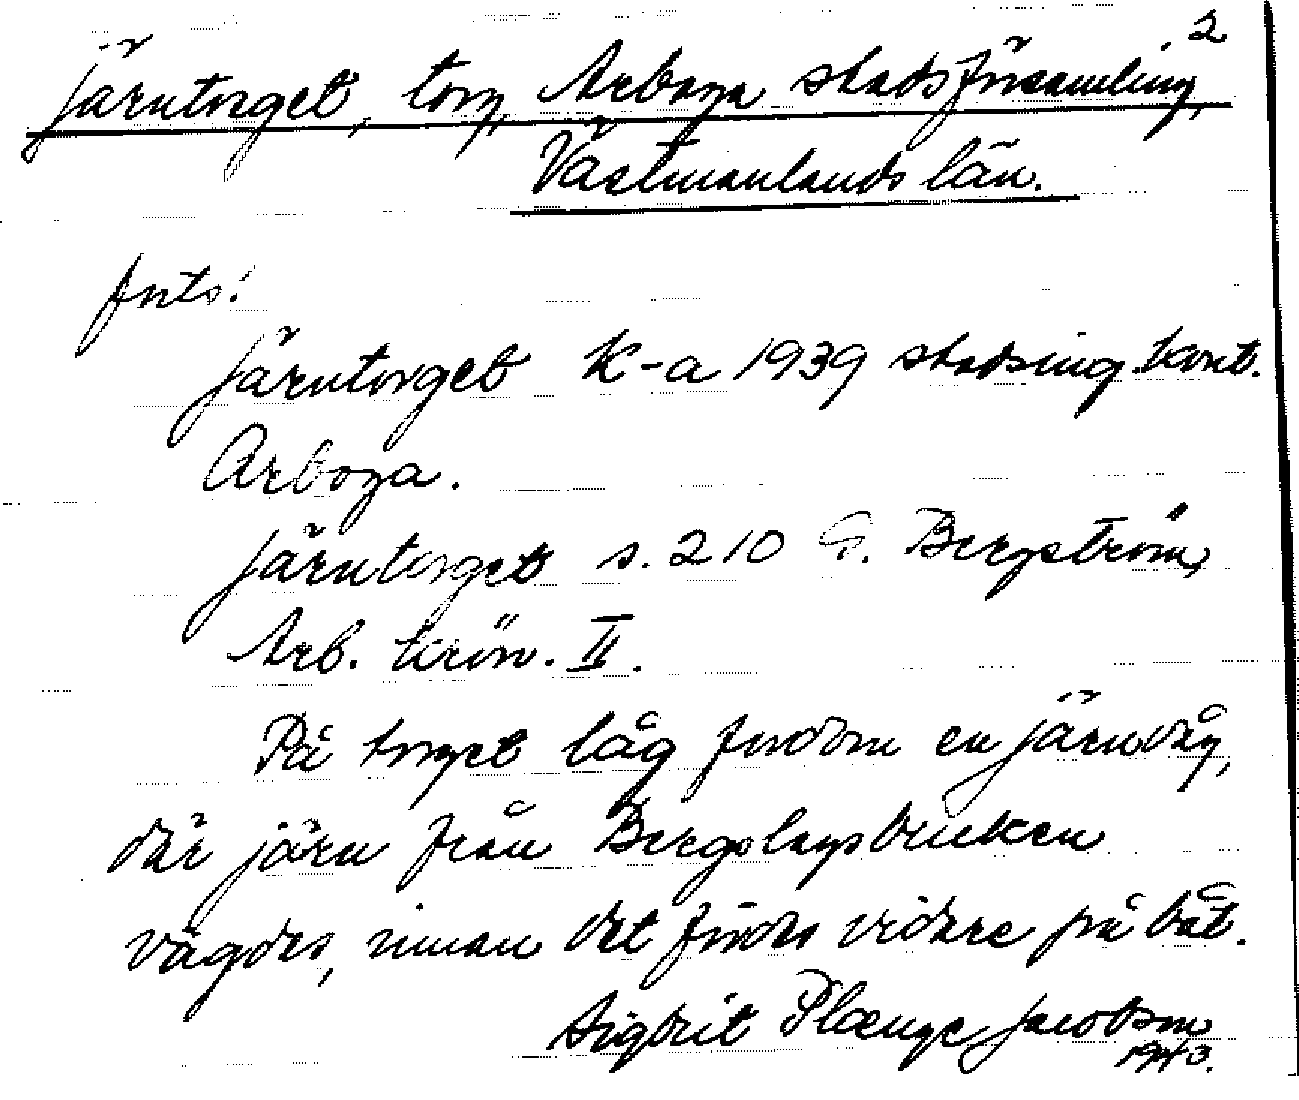 2
Järntorget, torg, Arboga stadsförsamling,
Västmanlands län.
forts.
Järntorget K-a 1939 stadsing.kont.
Arboga.
Järntorget s. 210 G. Bergström,
Arb. krön. II.
På torget låg fordom en järnvåg,
där järn från Bergslagsbruken
vägdes, innan det fördes vidare på båt.
Sigbrit Plænge Jacobson
1943.